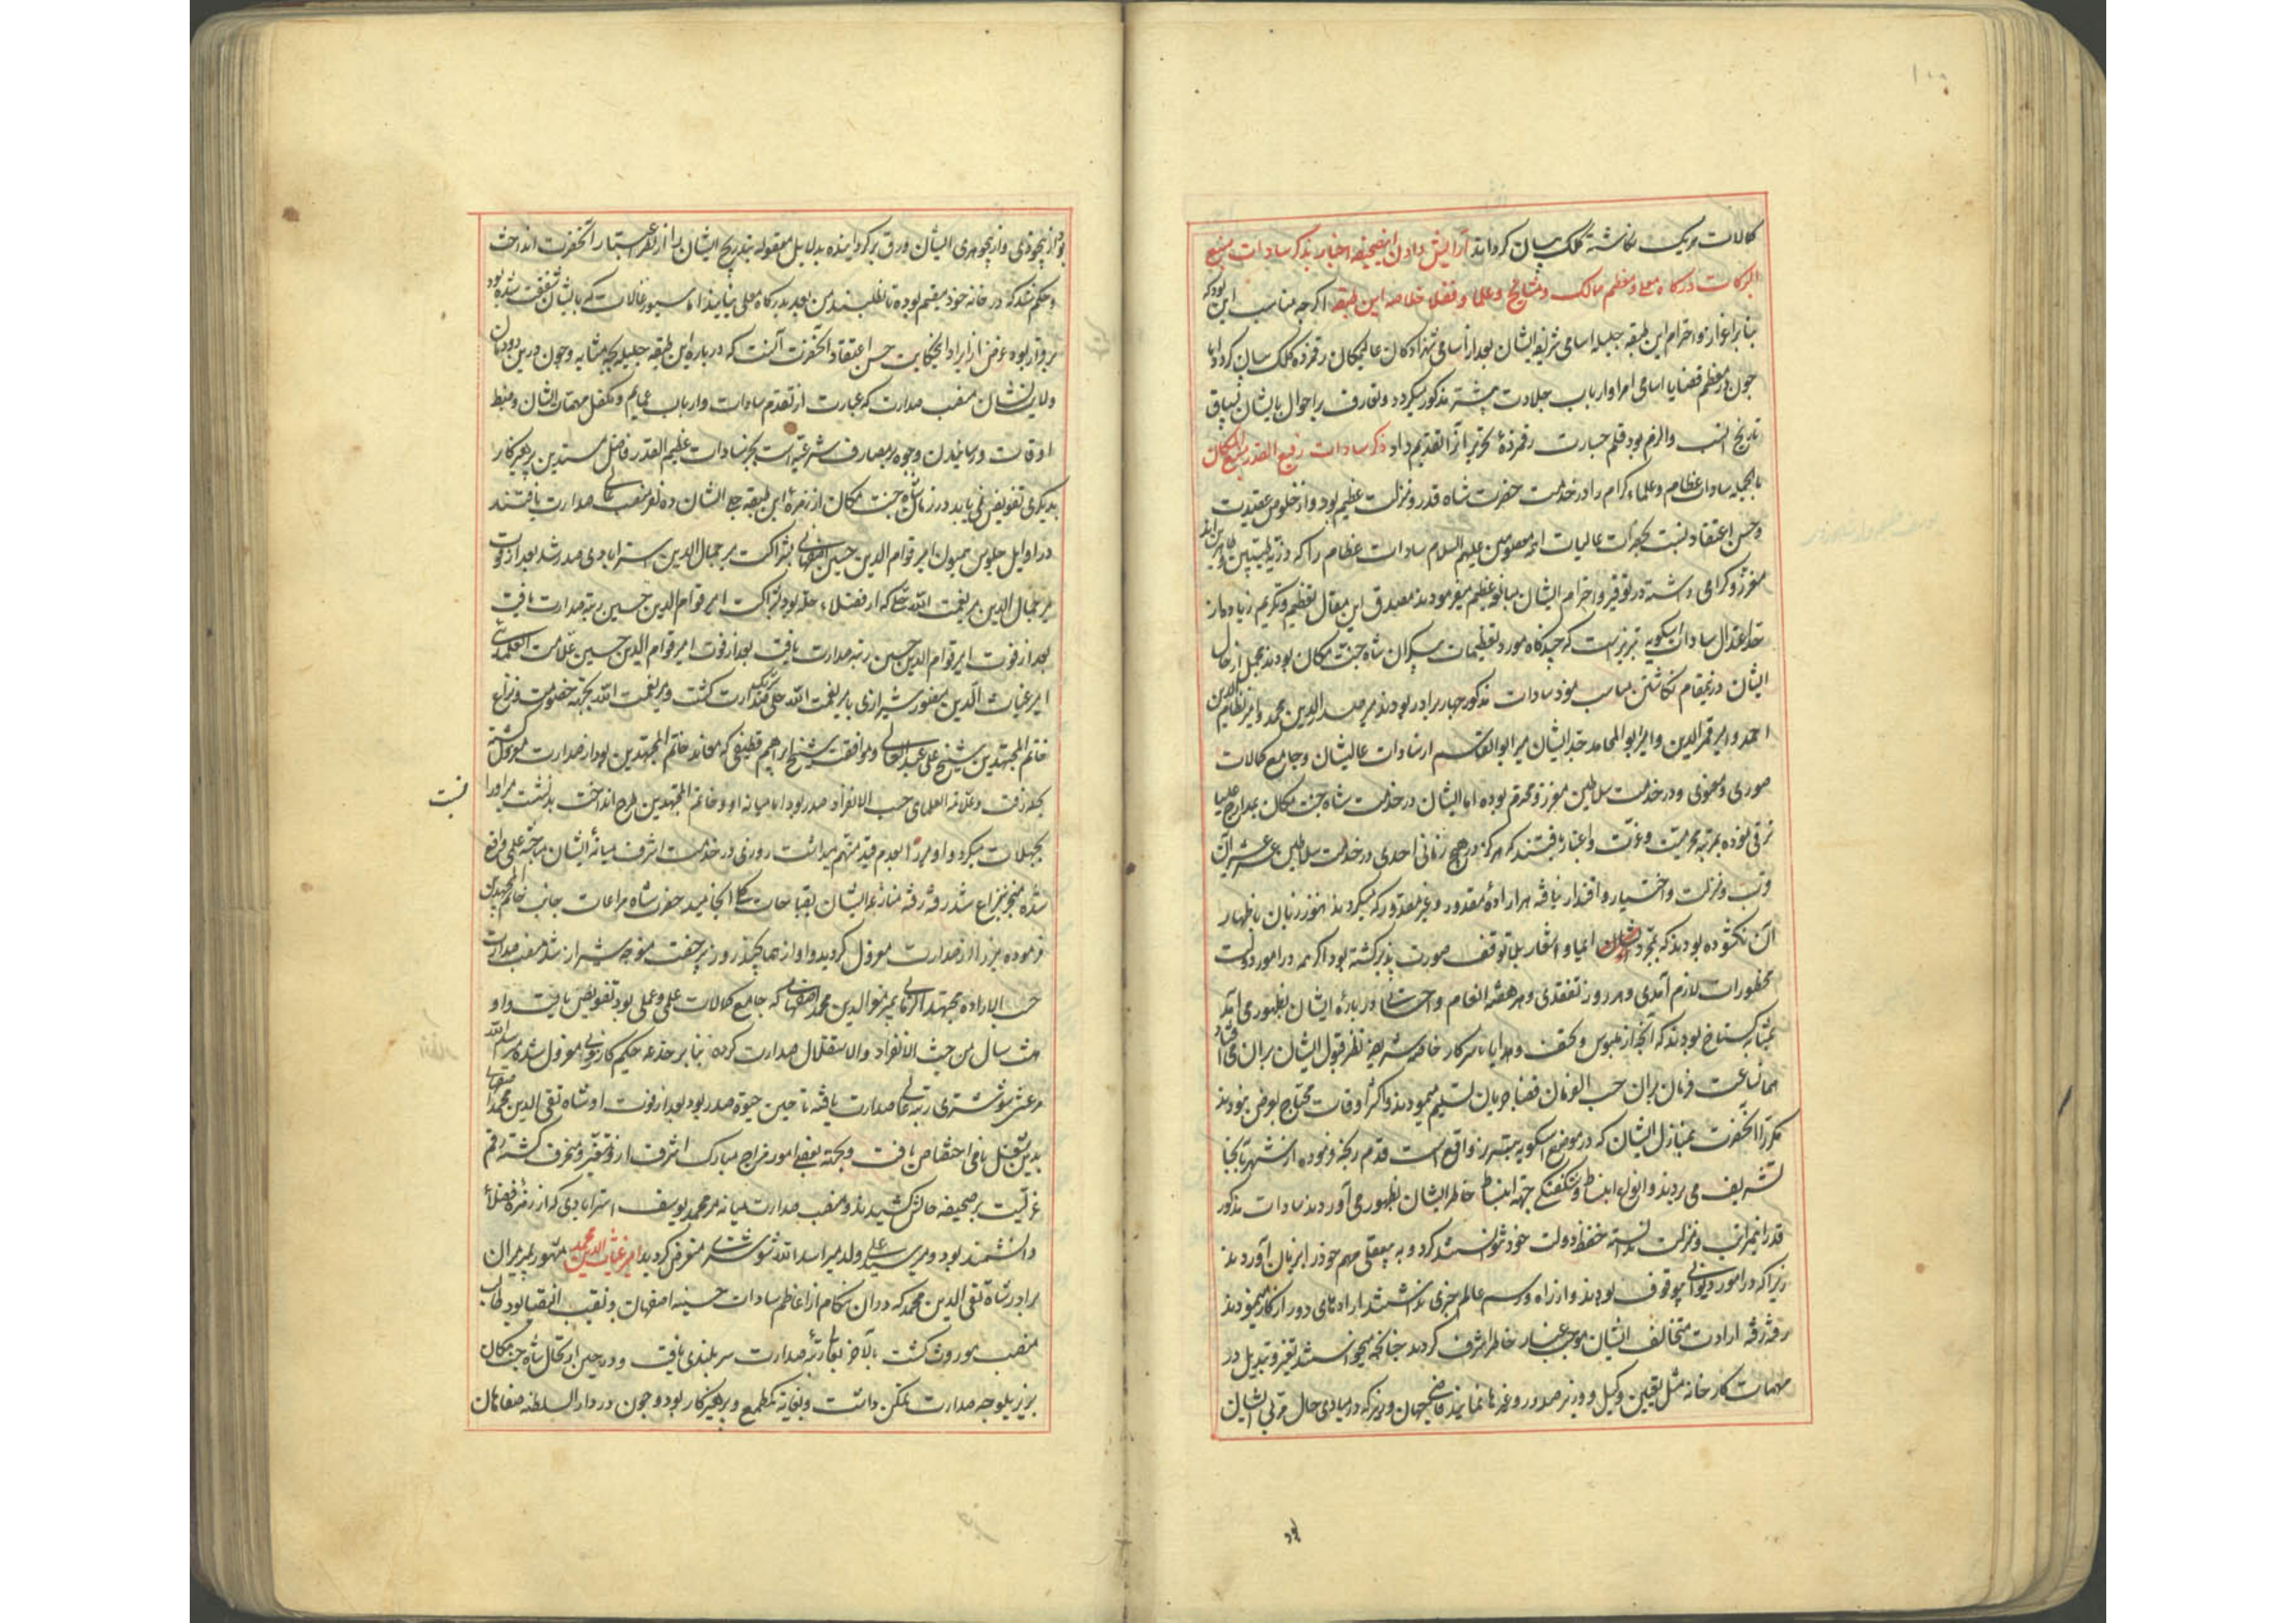 کمالات هریک نگاشتهٔ کلک بیان گرداند آرایش دادن این صحیفه اخبار بذکر سادات منیع
البرکات درگاه معلی و معظم ممالک و مشایخ و علما و فضلا خلاصه این طبقه اگرچه مناسب این بود که
بنابر اعزاز و احترام این طبقه جلیله اسامی شریف ایشان بعد از اسامی شهزادگان عالیمکان رقمزده کلک بیان گردد اما
چون در معظم قضایا اسامی امرا و ارباب جلادت پیشتر مذکور میگردد و تعارف بر احوال ایشان بسیاق
تاریخ انسب و الزم بود قلم جسارت رقمزدهٔ تحریر آنرا تقدیم داد ذکر سادات رفیع القدر منیع المکان
بالجمله سادات عظام و علماء کرام را در خدمت حضرت شاه قدر و منزلت عظیم بود و از خلوص عقیدت
و حسن اعتقاد نسبت بحضرات عالیات ائمه معصومین علیهم السلام سادات عظام را که ذریه طیبین و طاهرین اند
معزز و گرامی داشته در توقیر و احترام ایشان مبالغه عظیم میفرمودند مصدق این مقال تعظیم و تکریم زیاده از
حد اعتدال سادات اسکویه تبریز است که چندگاه مورد تعظیمات بیکران شاه جنت مکان بودند مجمل از حال
ایشان درین مقام نگاشتن مناسب نمود سادات مذکور چهار برادر بودند میر صدرالدین محمد و امیر نظام الدین
احمد و امیر قمرالدین و امیر ابو المحامد جد ایشان میر ابو القاسم از سادات عالیشان و جامع کمالات
صوری و معنوی و در خدمت سلاطین معزز و محترم بوده اما ایشان در خدمت شاه جنت مکان بمدارج علیا
ترقی نموده بمرتبه محرمیت و عزت و اعتبار یافتند که هرگز در هیچ زمانی احدی در خدمت سلاطین عشر عشیر آن
رتبت و منزلت و اختیار و اقتدار نیافته هر ارادهٔ مقدور و غیر مقدور که میکردند هنوز زبان باظهار
آن نگشوده بودند که بمجرد ایما و اشعار بلا توقف صورت پذیر گشته بود اگرچه در امور دولت
محظورات لازم آمدی و هر روز تفقدی و هر هفته انعام و احسانی در باره ایشان بظهور می آمد
بمثابه گستاخ بودند که آنچه از ملبوس و تحف و هدایا بسرکار خاصه شریفه نظر قبول ایشان بر آن می افتاد
همان ساعت فرمان بران حسب الفرمان قضا جریان تسلیم مینمودند و اکثر اوقات محتاج بعرض نبودند
مکرر آنحضرت بمنازل ایشان که در موضع اسکویه تبریز واقع است قدم رنجه فرموده از شهر تا آنجا
تشریف می بردند و انواع انبساط و شگفتگی جهة انبساط خاطر ایشان بظهور می آوردند سادات مذکور
قدر آنمراتب و منزلت ندانسته حفظ دولت خود نتوانستند کرد و به بیعقلی مهم خود را بزیان آوردند
زیرا که در امور دیوانی بیوقوف بودند و از راه و رسم عالم خبری نداشتند ارادهای دور از کار مینمودند
رفته رفته ارادت متخالف ایشان موجب غبار خاطر اشرف گردید چنانچه میخواستند تغیر و تبدیل در
مهمات کارخانه مثل تعیین وکیل و وزیر و صدور و غیرها نمایند قاضی جهان وزیر که در مبادی حال مربی ایشان
بود
بود از بیخودی و از بیجوهری ایشان ورق برگردانیده بدلایل معقوله بتدریج ایشان را از نظر اعتبار آنحضرت انداخت
و حکم شد که در خانه خود مقیم بوده تا نطلبند من بعد بدرگاه معلی نیایند اما سیورغالات که بایشان شفقت شده بود
برقرار بوده غرض از ایراد این حکایت حسن اعتقاد آنحضرت آنست که درباره این طبقه جلیله بچه مثابه و چون درین دودمان
ولایت نشان منصب صدارت که عبارت از تقدم سادات و ارباب عمایم و تکفل مهمات ایشان و ضبط
اوقات و رسانیدن وجوه بمصارف شرعیه است بجز سادات عظیم القدر فاضل متدین پرهیزکار
بدیگری تفویض نمی یابد در زمان شاه جنت مکان از زمره این طبقه عالی شان ده نفر منصب عالی صدارت یافتند
در اوایل جلوس همیون امیر قوام الدین حسین اصفهانی بشراکت میر جمال الدین استرابادی صدر شد بعد از فوت
میر جمال الدین میر نعمت الله حلی که از فضلاء حله بود بشراکت امیر قوام الدین حسین رتبه صدارت یافت
بعد از فوت امیر قوام الدین حسین رتبه صدارت یافت بعد از فوت امیر قوام الدین حسین علامت العلمائی
امیر غیاث الدین منصور شیرازی با میر نعمت الله حلی شریک صدارت گشت و میر نعمت الله بجهة خصومت و نزاع
خاتم المجتهدین شیخ علی عبدالعالی و موافقت شیخ ابراهیم قطیفی که معاند خاتم المجتهدین بود از صدارت معزول گشته
بحله رفت و علامه العلمای حسب الانفراد صدر بود اما میانه او و خاتم المجتهدین طرح انداخت بدنشست میر او را نسبت
بجهلات میکرد و او میر را بعدم قید متهم میداشت روزی در خدمت اشرف میانهٔ ایشان مباحثه علمی واقع
شده منجر بنزاع شد رفته رفته منازعه ایشان بقباحات کلی انجامید حضرت شاه مراعات جانب خاتم المجتهدین
فرموده میر را از صدارت معزول گردید و او از هما چند روز برخفت متوجه شیراز شد منصب صدارت
حسب الاراده مجتهد الزمانی بمیر معزالدین محمد اصفهانی که جامع کمالات علمی و عملی بود تفویض یافت و او
هشت سال من حیث الانفراد والاستقلال صدارت کرده بنابر خدعه حکیم کازرونی معزول شده میر اسدالله
مرعشی شوشتری رتبه عالی صدارت یافته تا حین حیوة صدر بود بعد از فوت او شاه تقی الدین محمد اصفهانی
بدین شغل نامی اختصاص یافت و بجهة بعضی امور مزاج مبارک اشرف ازو متغیر و منحرف گشته رقم
عزلیت بر صحیفه حالش کشیدند و منصب صدارت میانه میر محمد یوسف استرابادی که از زمره فضلا
دانشمند بود و میر سید علی ولد میر اسدالله شوشتری منقرض گردید امیر غیاث الدین محمد مشهور بمیرمیران
برادر شاه تقی الدین محمد که در آن هنگام از اعاظم سادات حسینیه اصفهان و نقیب النقبا بود طالب
منصب موروث گشت بالآخر بعالی رتبهٔ صدارت سربلندی یافت و در حین ارتحال شاه جنت مکان
صدارت تمکن داشت و بغایة کم طمع و پرهیزکار بود و چون در دار السلطنه صفاهان